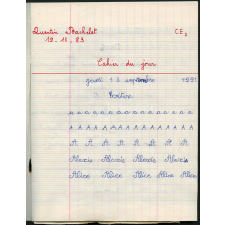 Quentin Bachelet CE2
19.11.83
Cahier du jour
jeudi 13 septembre 1991
Ecriture
a a a a a a a a a a a a
A A A A A A A A A A A A
A A A A A A A A
Alexis Alexis Alexis Alexis
Alice Alice Alice Alice Alice